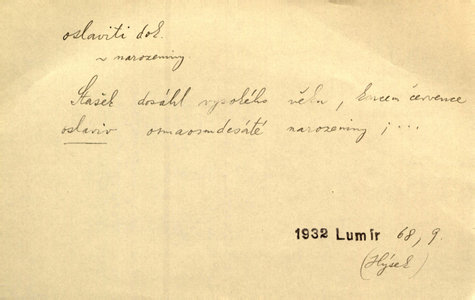 oslaviti dok.
~ narozeniny
Stašek dosáhl vysokého věku, koncem července
oslaviv osmaosmdesáté narozeniny; ...
1932 Lumír 68, 9.
(Hýsek)